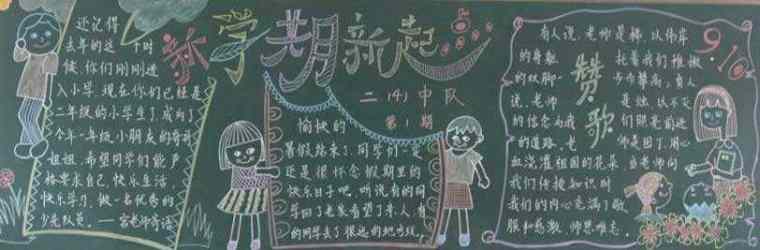 新学期新起点
二（4）中队
第1期
还记得
去年的这个时
候，你们刚刚进
入小学，现在你们已经是
二年级的小学生了，成为了
个年一年级小朋友的哥哥
姐姐，希望同学们能严
格要求自己，快乐生活，
快乐学习，做一名优秀的
少先队员。——宫老师寄语
愉快的
暑假结束了，同学们一定
还是很怀念假期里的
快乐日子吧，听说有的同
学回了老家看望了亲人，有
的同学去了很远的地方玩。
9.10
赞歌
有人说，老师是梯，以伟岸
的身躯 托着我们稚嫩
的双脚 步步攀高，有人
说，老师 是烛，以不灭
的信念为我 们照亮前进
的道路，老 师是园丁，用心
血浇灌祖国的花朵 当老师向
我们传授知识时
我们的内心充满了敬
服和感激，师恩难忘。